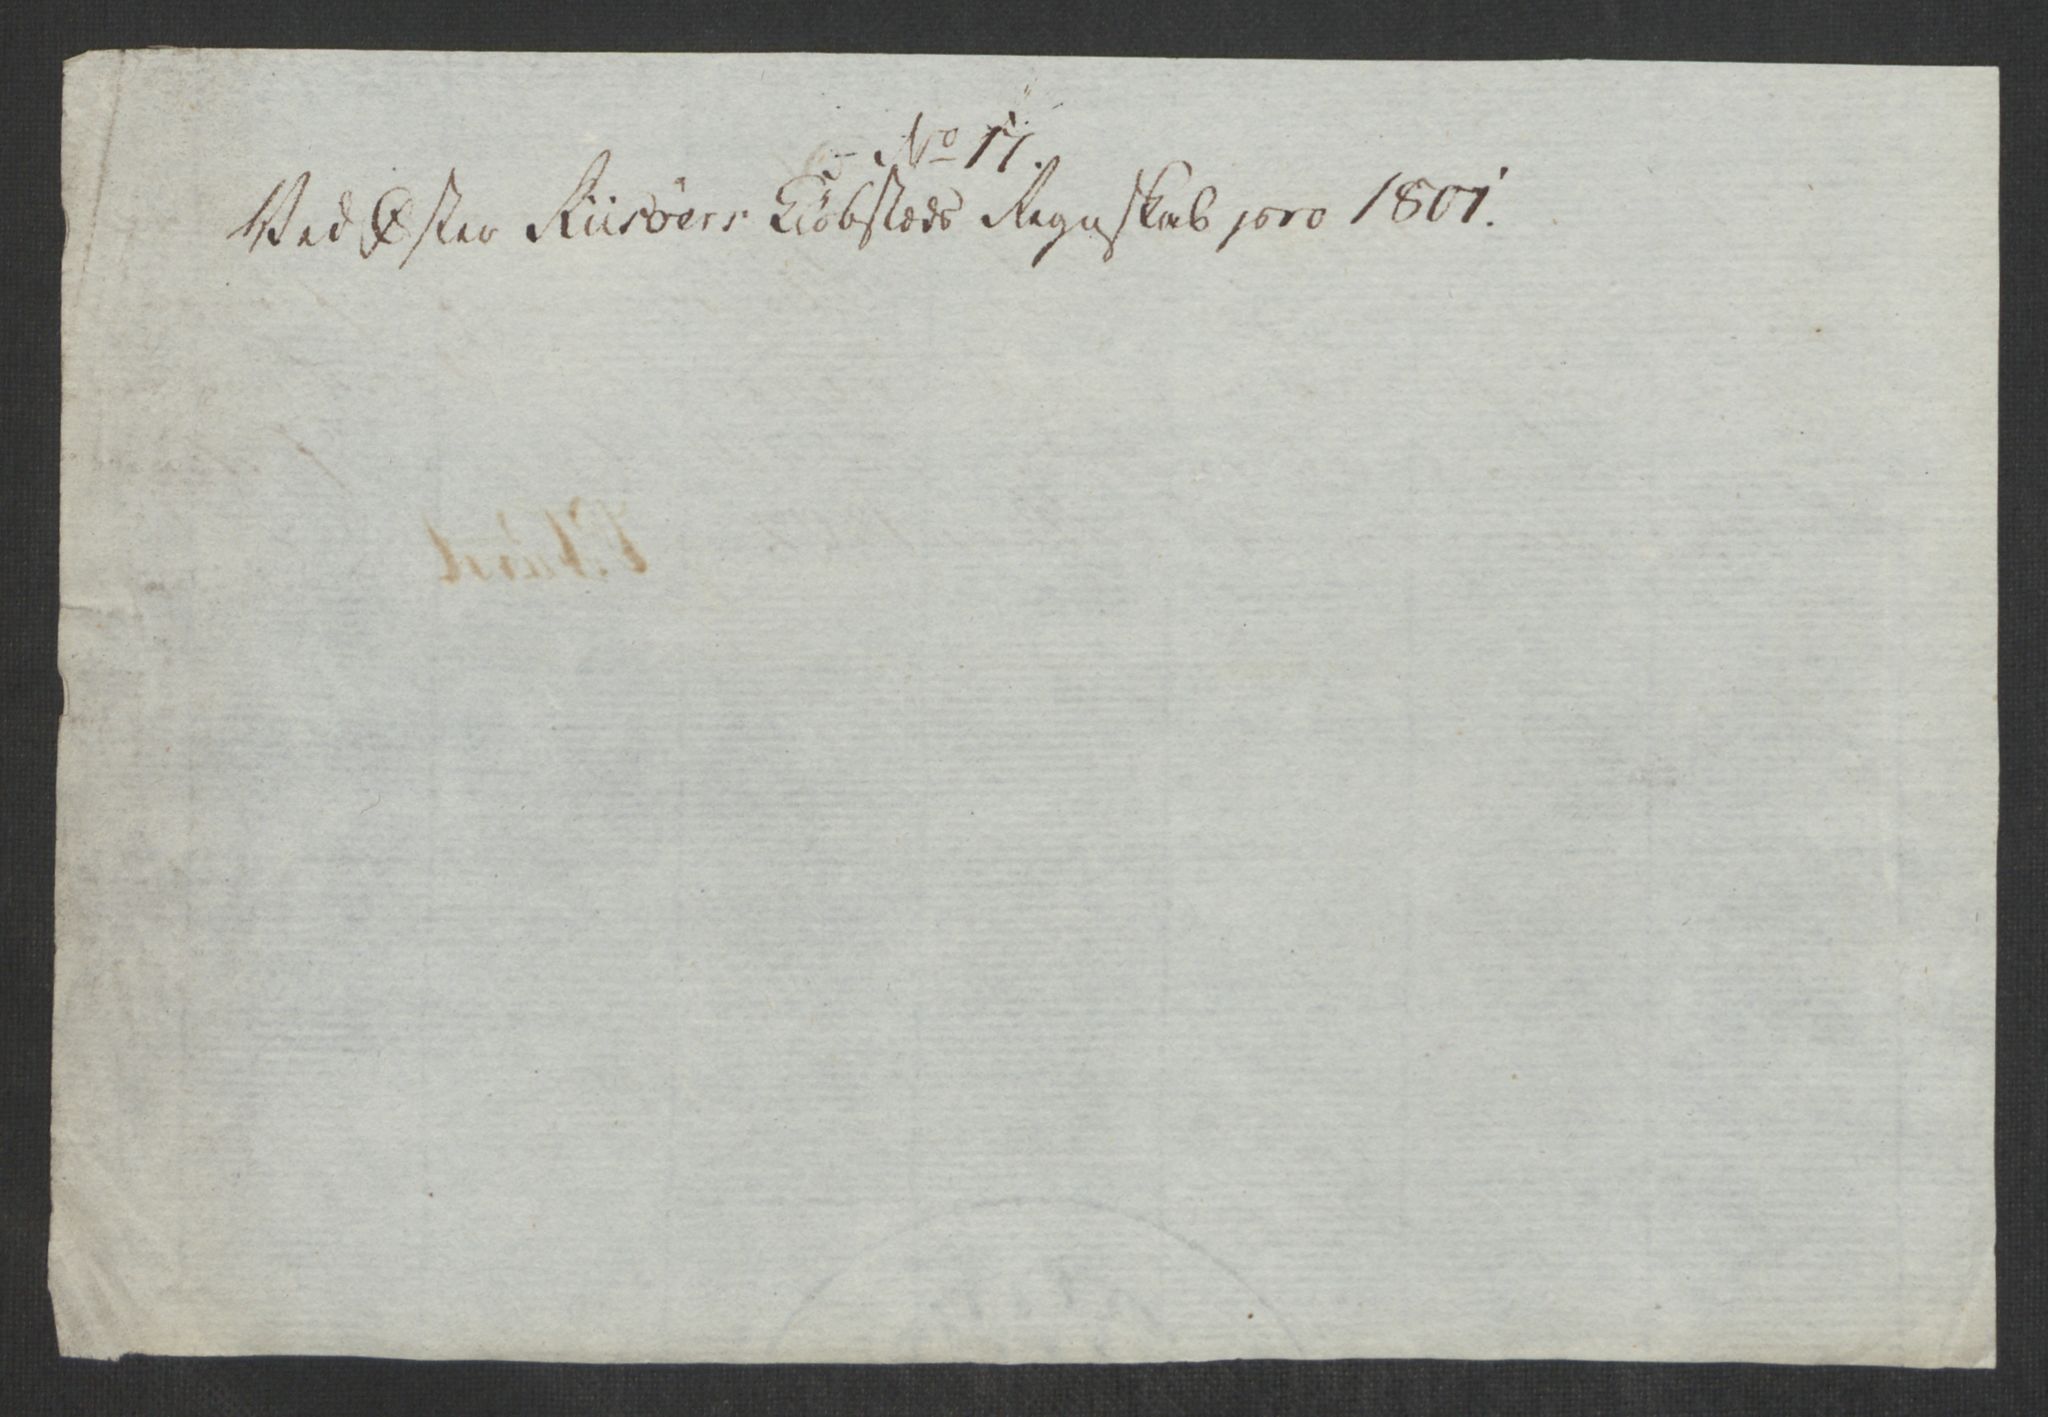 No 17.
Ved Øster Riisöers Kiöbstæds Regnskab pro 1801.